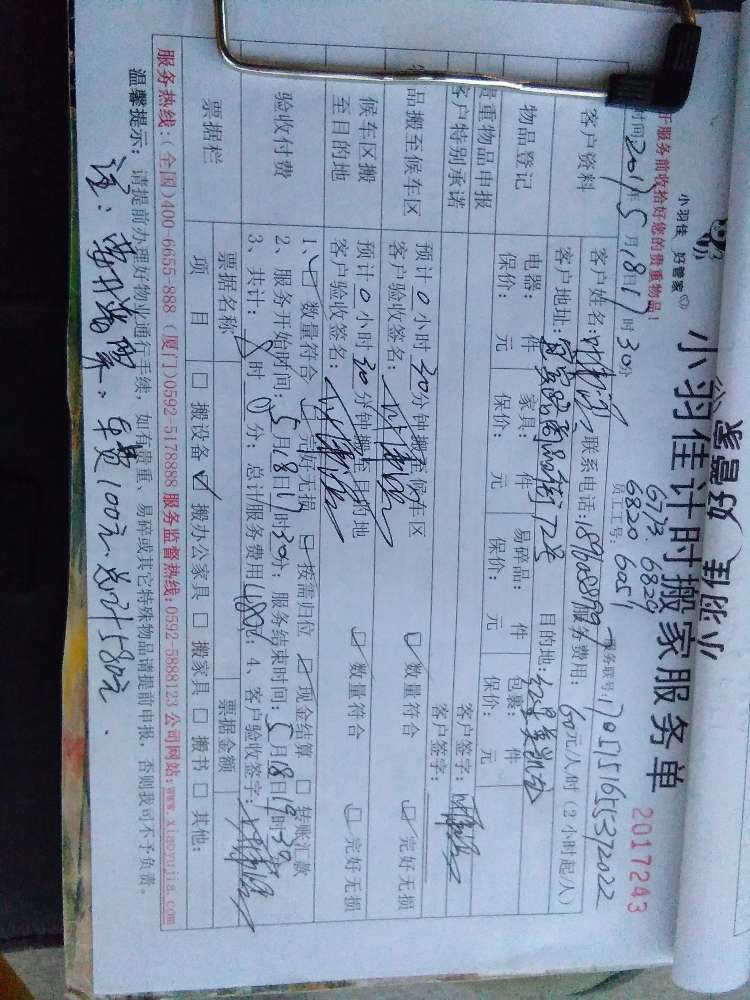 小羽佳 好管家
小羽佳计时搬家服务单
2017243
6773 6829
6820 6051
员工工号:
服务前收拾好您的贵重物品!
时间: 2017年5月18日17时30分
服务联号: 1705151655372022
客户资料
客户姓名: 联系电话: 服务费用: 60元/人/时(2小时起/人)
客户地址: 商品街72号 目的地:
物品登记
电器: 件 家具: 件 易碎品: 件 包裹: 件
保价: 元 保价: 元 保价: 元 保价: 元
贵重物品申报
客户特别承诺
客户签字:
客户签字:
物品搬至候车区
预计0小时30分钟搬至候车区
客户验收签名: ☑数量符合 ☑完好无损
候车区搬至目的地
预计0小时30分钟搬至目的地
客户验收签名: ☑数量符合 ☑完好无损
验收付费
1、☑数量符合 ☑完好无损 ☑按需归位 ☑现金结算 □转账汇款
2、服务开始时间: 5月18日17时30分; 服务结束时间: 5月18日19时30分
3、共计: 8时0分; 总计服务费用480元; 4、客户验收签字:
票据栏
票据名称 票据金额
项目 □搬设备 ☑搬办公家具 □搬家具 □搬书 □其他:
服务热线:(全国)400-6655-888 (厦门)0592-5178888 服务监督热线:0592-5888123 公司网站:www.xiaoyujia.com
温馨提示: 请提前办理好物业通行手续, 如有贵重、易碎或其它特殊物品请提前申报, 否则我司不予负责。
注: 车费100元. 总计580元.